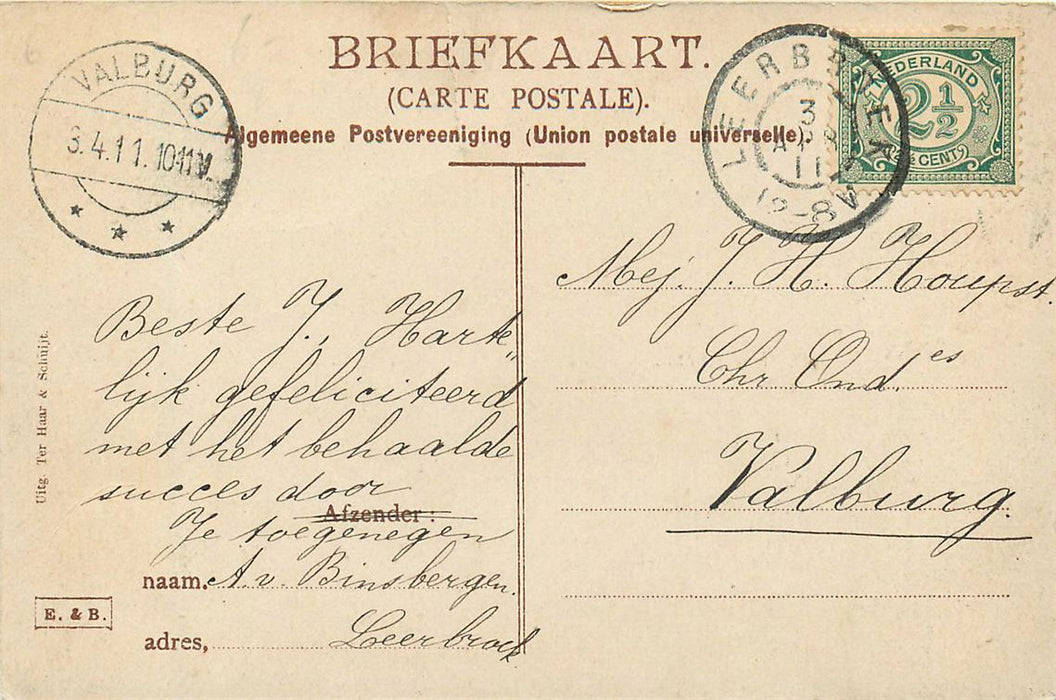 BRIEFKAART.
(CARTE POSTALE).
Algemeene Postvereeniging (Union postale universelle).
VALBURG
3.4.11.10-11V.
LEERBROEK
3
APR
11
12-8V
NEDERLAND
2½
2½ CENT
Beste J., Harte„
lijk gefeliciteerd
met het behaalde
succes door
Afzender:
Je toegenegen
naam. A v. Binsbergen.
adres, Leerbroek
Mej. J. H. Houpst.
Chr. Ond.es
Valburg.
Uitg. Ter Haar & Schuijt.
E. & B.